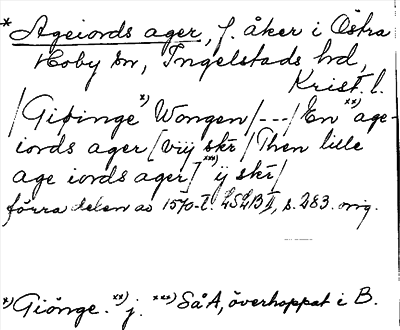 * Ageiords ager, f. åker i Östra
Hoby sn, Ingelstads hd,
Krist. l.
/Giöinge *) Wongen/---/En **) age-
iords ager [vij skr̄/Then lille
age iords ager] ***) ij skr̄/
förra delen av 1570-t. LSLB II, s. 283. orig.
*) Giönge. **) j. ***) Så A, överhoppat i B.